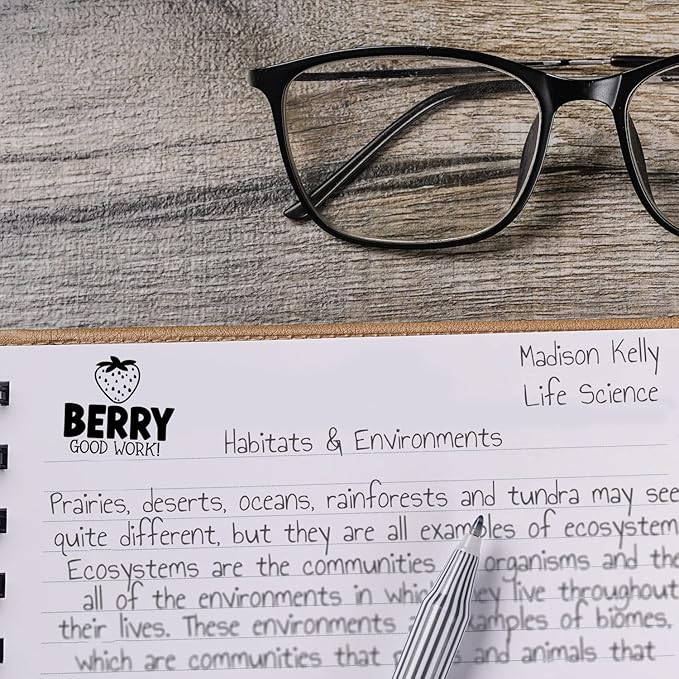 Madison Kelly
Life Science
BERRY
GOOD WORK!
Habitats & Environments
Prairies, deserts, oceans, rainforests and tundra may see
quite different, but they are all examples of ecosystem
Ecosystems are the communities organisms and the
all of the environments in which live throughout
their lives. These environments of biomes,
which are communities that and animals that